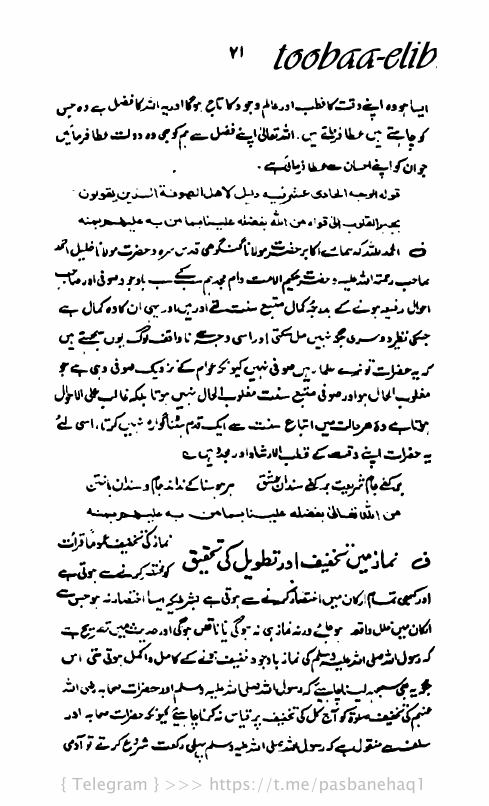 ۷۱ toobaa-elib
ایسا ہو وہ اپنے وقت کا قطب اور عالم وجود کا تاج ہوگا اور یہ اللہ کا فضل ہے وہ جس
کو چاہتے ہیں عطا فرماتے ہیں۔ اللہ تعالیٰ اپنے فضل سے ہم کو بھی وہ دولت عطا فرمائیں
جو ان کو اپنے احسان سے عطا فرمائی ہے۔
قوله الوجه الحادى عشر فيه دليل لاهل الصوفة الذين يقولون
بجبر القلوب الى قوله من الله بفضله علينا بما من به عليهم بمنه
ف الحمد للہ کہ ہمارے اکابر حضرت مولانا گنگوہی قدس سرہ و حضرت مولانا خلیل احمد
صاحب رحمۃ اللہ علیہ و حضرت حکیم الامت دام مجدہم سب کے سب باوجود صوفی اور صاحب
احوال رفیعہ ہونے کے بدرجۂ کمال متبع سنت تھے اور ہیں اور یہی ان کا وہ کمال ہے
جسکی نظیر دوسری جگہ نہیں مل سکتی اور اسی وجہ سے ناواقف لوگ یوں سمجھتے ہیں
کہ یہ حضرات تو نرے علماء ہیں صوفی نہیں کیونکہ عوام کے نزدیک صوفی وہی ہے جو
مغلوب الحال ہو اور صوفی متبع سنت مغلوب الحال نہیں ہوتا بلکہ غالب علی الاحوال
ہوتا ہے وہ ہر حالت میں اتباع سنت سے ایک قدم ہٹنا گوارہ نہیں کرتا، اسی لئے
یہ حضرات اپنے وقت کے قطب الارشاد اور مجدد ہیں ے
بر کفے جام شریعت بر کفے سندان عشق ہر ہوسناکے نداند جام و سندان باختن
من الله تعالىٰ بفضله علينا بما من به عليهم بمنه
ف نماز میں تخفیف اور تطویل کی تحقیق نماز کی تخفیف عموماً قرأت
کو مختصر کرنے سے ہوتی ہے
اور کبھی تمام ارکان میں اختصار کرنے سے ہوتی ہے بشرطیکہ ایسا اختصار نہ ہو جس سے
ارکان میں خلل واقع ہو جائے ورنہ نماز ہی نہ ہوگی یا ناقص ہوگی اور حدیث میں تصریح ہے
کہ رسول اللہ صلی اللہ علیہ وسلم کی نماز باوجود خفیف ہونے کے کامل و اکمل ہوتی تھی اس
جگہ یہ بھی سمجھ لینا چاہئے کہ رسول اللہ صلی اللہ علیہ وسلم اور حضرات صحابہ رضی اللہ
عنہم کی تخفیف صلوۃ کو آج کل کی تخفیف پر قیاس نہ کرنا چاہئے کیونکہ حضرات صحابہ اور
سلف سے منقول ہے کہ رسول اللہ صلی اللہ علیہ وسلم پہلی رکعت شروع کرتے تو آدمی
{ Telegram } >>> https://t.me/pasbanehaq1